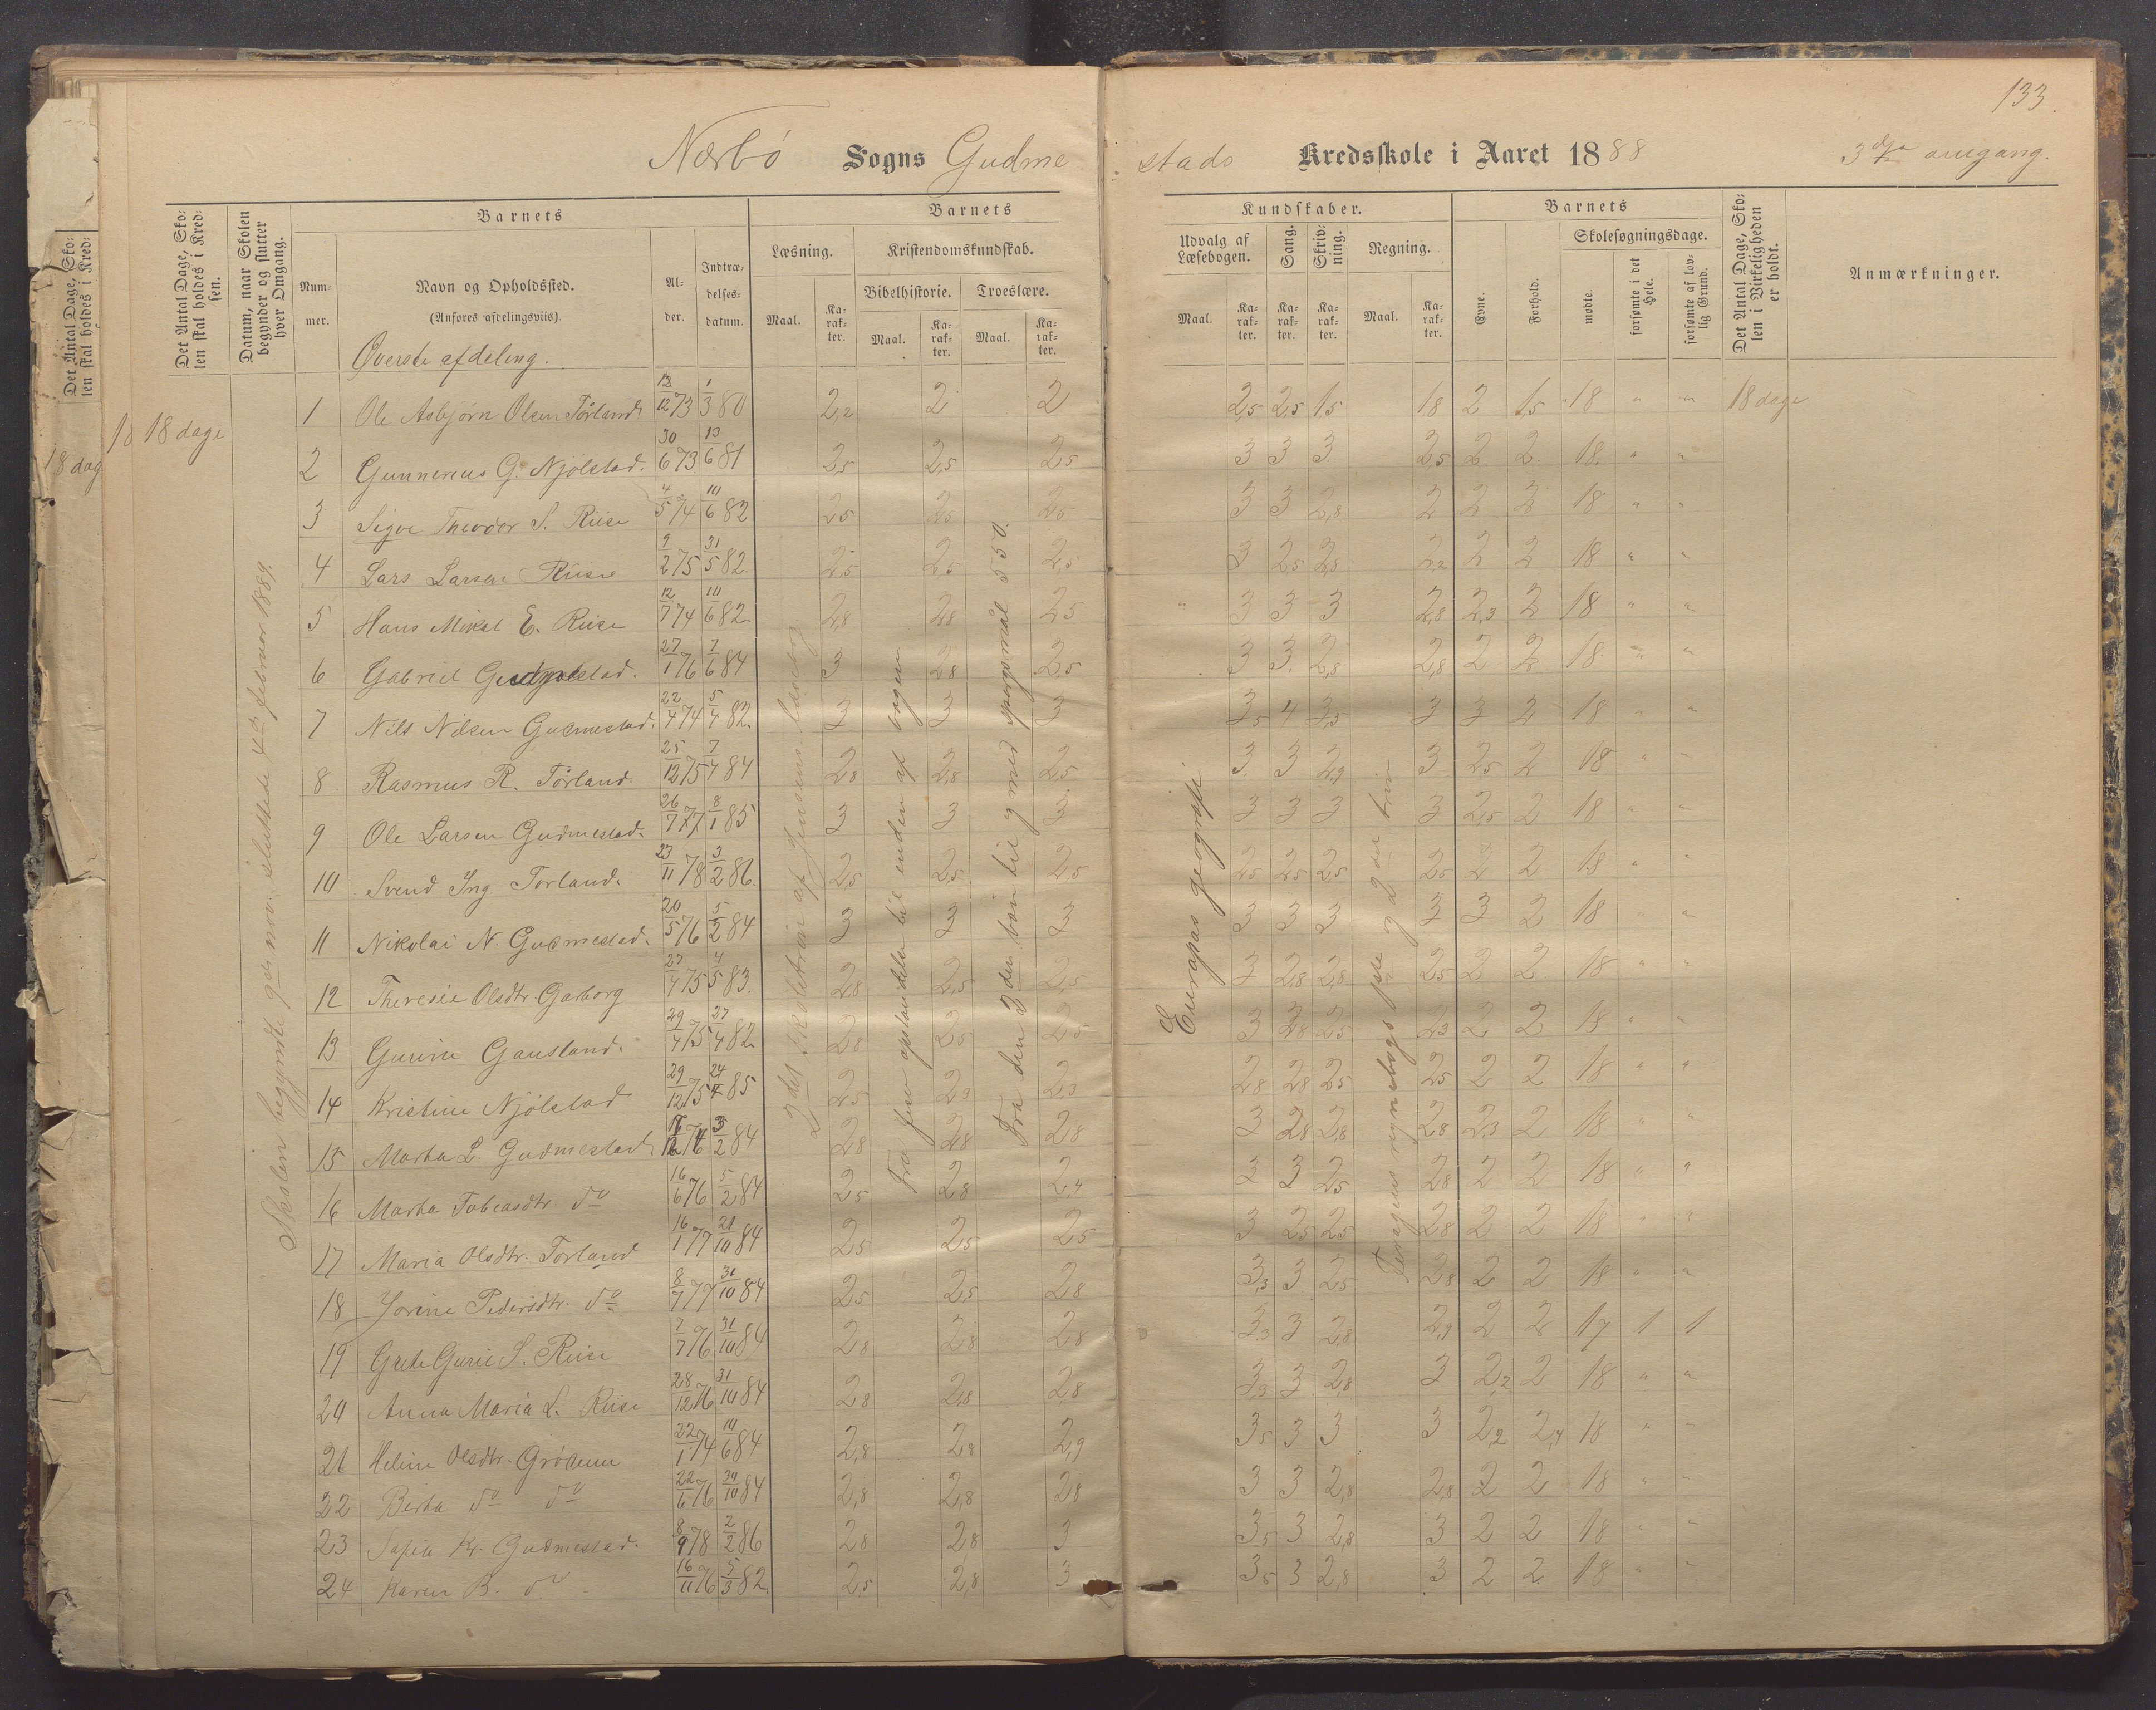 133.
Nærbø Sogns Gudme stads Kredsskole i Aaret 1888 3dje omgang.
Det Antal Dage, Skolen skal holdes i Kredsen.
Datum, naar Skolen begynder og slutter hver Omgang.
Barnets
Nummer.
Navn og Opholdssted.
(Anføres afdelingsviis).
Alder.
Indtrædelsesdatum.
Barnets Kundskaber.
Læsning.
Maal.
Karakter.
Kristendomskundskab.
Bibelhistorie.
Maal.
Karakter.
Troeslære.
Maal.
Karakter.
Udvalg af Læsebogen.
Maal.
Karakter.
Sang.
Karakter.
Skrivning.
Karakter.
Regning.
Maal.
Karakter.
Barnets
Evne.
Forhold.
Skolesøgningsdage.
mødte.
forsømte i det Hele.
forsømte af lovlig Grund.
Det Antal Dage, Skolen i Virkeligheden er holdt.
Anmærkninger.
Øverste afdeling.
18 dage
Skolen begyndte 9de nov. sluttede 4de februar 1889.
2det skoletrin af Jensens læsebog
Fra jesu opstandelse til enden af bogen
Fra den 2den bøn til og med spørgsmål 550.
Europas geografi
regnebogs 1ste og 2det trin
1 Ole Asbjørn Olsen Tørland 13/12 73 1/3 80 2,2 2 2 2,5 2,5 1,5 1,8 2 1,5 18 " " 18 dage
2 Gunnerius G. Njølstad. 30/6 73 13/6 81 2,5 2,5 2,5 3 3 3 2,5 2 2 18 " "
3 Sigve Theodor S. Riise 4/5 74 10/6 82 2,5 2,5 2,5 3 3 2,8 2 2 2 18 " "
4 Lars Larsen Riise 9/2 75 31/5 82. 2,5 2,5 2,5 3 2,5 2,5 2,2 2 2 18 " "
5 Hans Mikal E. Riise 12/7 74 10/6 82. 2,8 2,8 2,5 3 3 3 2,8 2,3 2 18 " "
6 Gabriel Gudmestad. 27/1 76 7/6 84 3 2,8 2,5 3 3 2,8 2,8 2 2 18 " "
7 Nils Nilsen Gudmestad. 22/4 74 5/4 82. 3 3 3 3,5 4 3,5 3 3 2 18 " "
8 Rasmus R. Tørland 25/12 75 7/4 84 2,8 2,8 2,5 3 3 2,9 3 2,5 2 18 " "
9 Ole Larsen Gudmestad. 26/7 77 8/1 85 3 3 3 3 3 3 3 2,5 2 18 " "
10 Svend Ing. Torland. 23/11 78 3/2 86. 2,5 2,5 2,5 2,5 2,5 2,5 2,5 2 2 18 " "
11 Nikolai N. Gudmestad. 20/5 76 5/2 84 3 3 3 3 3 3 3 3 2 18 " "
12 Theresie Olsdtr. Garborg 27/4 75 4/5 83. 2,8 2,5 2,5 3 2,8 2,8 2,5 2 2 18 " "
13 Gurine Gausland. 29/4 75 27/4 82. 2,8 2,5 2,5 3 2,8 2,5 2,3 2 2 18 " "
14 Kristine Njølstad 29/12 75 24/4 85 2,5 2,3 2,3 2,8 2,8 2,5 2,5 2 2 18 " "
15 Marta L. Gudmestad. 3/2 84 2,8 2,8 2,8 3 2,8 2,8 2,8 2,3 2 18 " "
16 Marta Tobiasdtr. do 16/6 76 5/2 84 2,5 2,8 2,4 3 3 2,5 2,8 2 2 18 " "
17 Maria Olsdtr. Torland 16/1 77 21/10 84 2,5 2,5 2,5 3 2,5 2,5 2,8 2 2 18 " "
18 Jorine Pedersdtr. do 8/7 77 31/10 84 2,5 2,5 2,8 3,3 3 2,5 2,8 2 2 18 " "
19 Grete Gurie S. Riise 7/7 76 31/10 84 2,8 2,8 2,8 3,3 3 2,8 2,9 2 2 17 1 1
20 Anna Maria L. Riise 28/12 76 31/10 84 2,8 2,8 2,8 3,3 3 2,8 3 2,2 2 18 " "
21 Heline Olsdtr. Grødeim 22/1 74 10/6 84 2,8 2,8 2,9 3,5 3 3 3 2,2 2,4 18 " "
22 Berta do do 22/6 76 30/10 84 2,8 2,8 2,8 3 3 2,8 2,8 2 2 18 " "
23 Sofia Kr. Gudmestad. 8/9 78 2/2 86 2,8 2,8 3 3,5 3 2,8 3 2 2 18 " "
24 Karen B. do 16/11 76 5/3 82. 2,5 2,8 3 3,5 3 2,8 3 2 2 18 " "